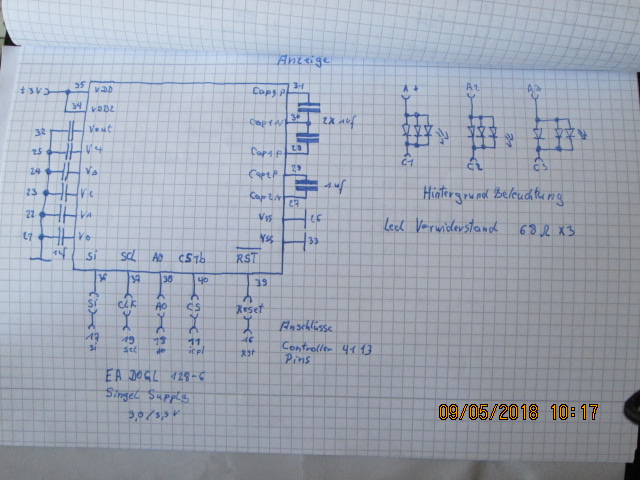 Anzeige
+3V3
35
VDD
34
VDD2
32
Vout
25
V4
24
V3
23
22
V1
21
V0
1uf
Cap3P
31
Cap1N
30
2x 1uf
Cap1P
29
Cap2P
28
1uf
Cap2N
27
VSS
26
VSS
33
Si
SCL
A0
CS1b
RST
36
37
38
40
39
Si
CLK
A0
CS
Reset
17
19
18
11
16
Si
Scl
A0
RST
A1
A2
A3
C1
C2
C3
Hintergrund Beleuchtung
Led Vorwiderstand 68Ω X3
Anschlüsse
Controller 4113
Pins
EA DOGL 128-6
Singel Supply
3,0/3,3V
09/05/2018 10:17